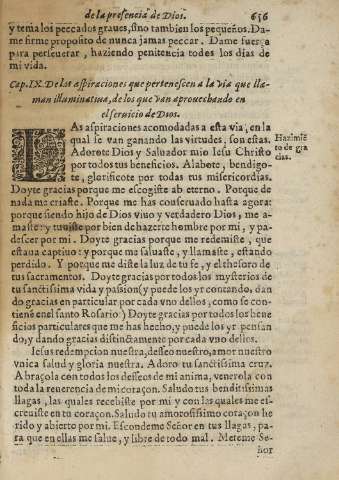 de la presencia de Dios. 656
y tema los peccados graues, sino tambien los pequeños. Da-
me firme proposito de nunca jamas peccar. Dame fuerça
para perseuerar, haziendo penitencia todos los dias de
mi vida.
Cap. IX. De las aspiraciones que pertenescen a la via que lla-
man illuminatiua, de los que van aprouechando en
el seruicio de Dios.
LAs aspiraciones acomodadas a esta via, en la
qual se van ganando las virtudes, son estas.
Adorote Dios y Saluador mio Iesu Christo
por todos tus beneficios. Alabote, bendigo-
te, glorificote por todas tus misericordias.
Doyte gracias porque me escogiste ab eterno. Porque de
nada me criaste. Porque me has conseruado hasta agora:
porque siendo hijo de Dios viuo y verdadero Dios, me a-
maste: y tuuiste por bien de hazerte hombre por mi, y pa-
descer por mi. Doyte gracias porque me redemiste, que
estaua captiuo: y porque me saluaste, y llamaste, estando
perdido. Y porque me diste la luz de tu fe, y el thesoro de
tus sacramentos. Doyte gracias por todos los mysterios de
tu sanctissima vida y passion (y puede los yr contando, dan
do gracias en particular por cada vno dellos, como se con-
tiene en el sancto Rosario:) Doyte gracias por todos los bene
ficios particulares que me has hecho, y puede los yr pensan
do, y dando gracias distinctamente por cada vno dellos.
Iesus redempcion nuestra, desseo nuestro, amor nuestro
vnica salud y gloria nuestra. Adoro tu sanctissima cruz.
Abraçola con todos los desseos de mi anima, venerola con
toda la reuerencia de mi coraçon. Saludo tus benditissimas
llagas, las quales recebiste por mi y con las quales me es-
creuiste en tu coraçon. Saludo tu amorosissimo coraçon he
rido y abierto por mi. Escondeme Señor en tus llagas, pa-
ra que en ellas me salue, y libre de todo mal. Meteme Se-
ñor
Hazimiẽ
to de gra
cias.